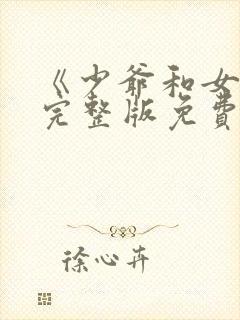 《少爷和女
完整版免費
徐心卉